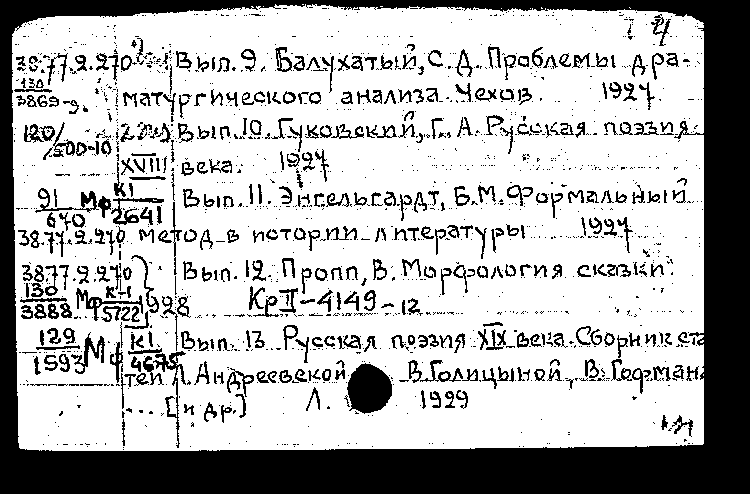 4
38.77.2.270 Вып. 9. Балухатый, С. Д. Проблемы дра-
130/3869-9. матургического анализа. Чехов. 1927
120/500-10 Вып. 10. Гуковский, Г. А. Русская поэзия
XVIII века. 1927
91/670 Мф К1/2641 Вып. 11. Энгельгардт, Б. М. Формальный
38.77.2.270 метод в истории литературы 1927
38.77.2.270 Вып. 12. Пропп, В. Морфология сказки.
130/3888 Мф К-1/5722 1928 Кр II-4149-12
129/1593 Мф К1/4675 Вып. 13 Русская поэзия XIX века. Сборник ста
тей Л. Андреевской В. Голицыной, В. Гофмана
... [и др.] Л. 1929